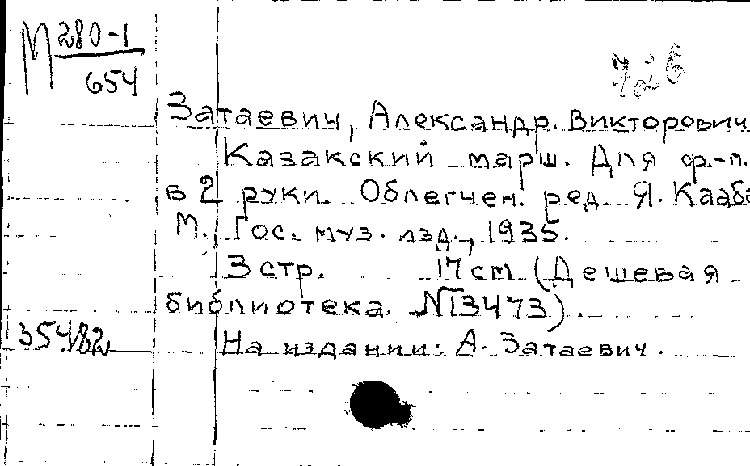 М 280-1
654
726
Затаевич, Александр. Викторович
Казакский марш. Для ф.-п.
в 2 руки. Облегчен. ред. Я. Кааб
М., Гос. муз. изд., 1935.
3 стр. 17 cm (Дешевая
библиотека. №3473).
35482 На издании: А. Затаевич.